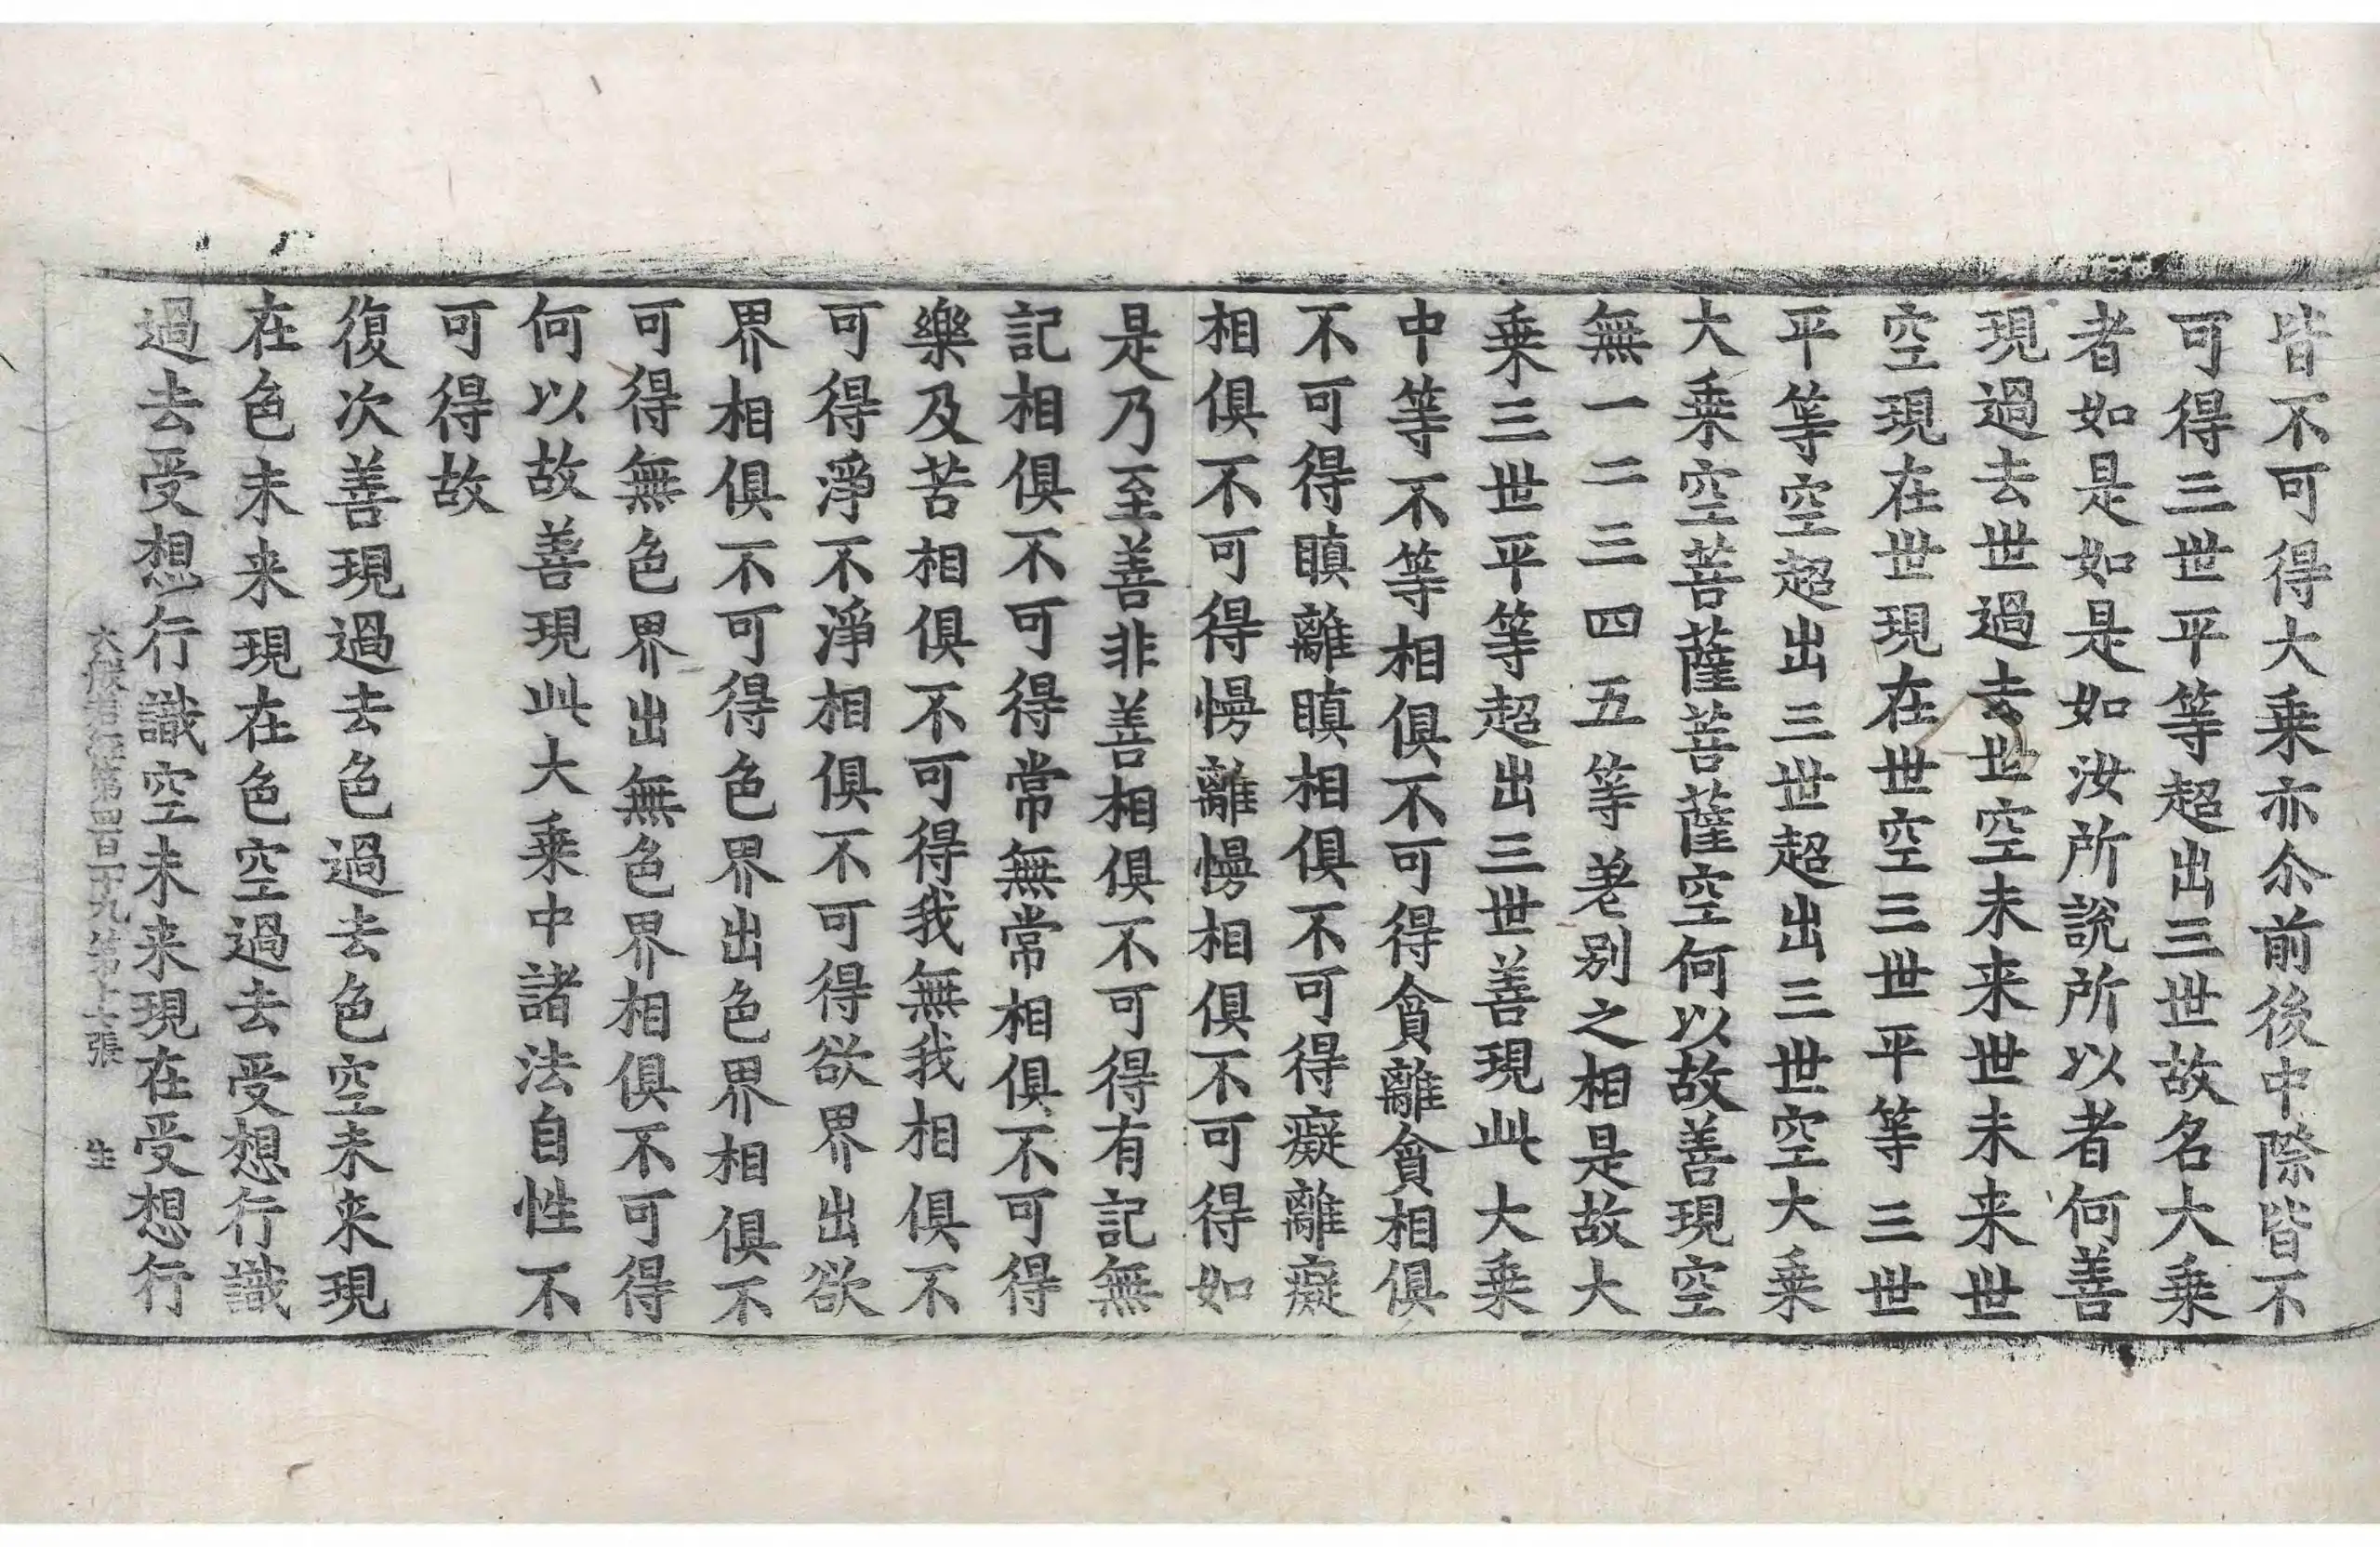 皆不可得大乗亦尒前後中際皆不
可得三世平等超出三世故名大乗
者如是如是如汝所說所以者何善
現過去世過去世空未来世未来世
空現在世現在世空三世平等三世
平等空超出三世超出三世空大乗
大乗空菩薩菩薩空何以故善現空
無一二三四五等差别之相是故大
乗三世平等超出三世善現此大乗
中等不等相俱不可得貪離貪相俱
不可得瞋離瞋相俱不可得癡離癡
相俱不可得慢離慢相俱不可得如
是乃至善非善相俱不可得有記無
記相俱不可得常無常相俱不可得
樂及苦相俱不可得我無我相俱不
可得淨不淨相俱不可得欲界出欲
界相俱不可得色界出色界相俱不
可得無色界出無色界相俱不可得
何以故善現此大乗中諸法自性不
可得故
復次善現過去色過去色空未来現
在色未来現在色空過去受想行識
過去受想行識空未来現在受想行
大般若經第四百一十九 第十張 生